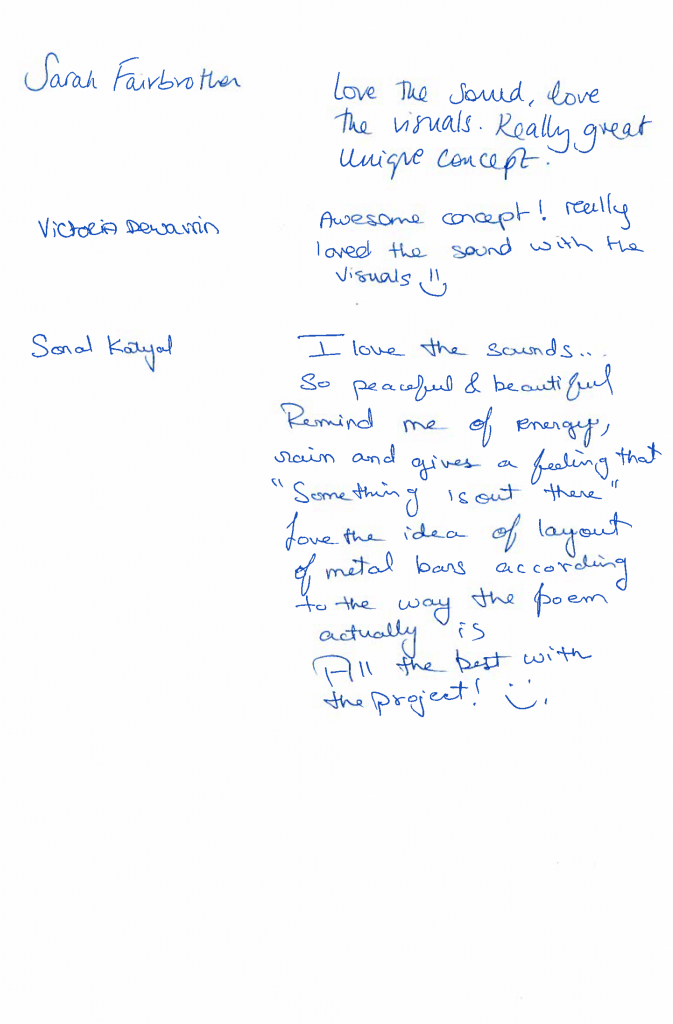 Sarah Fairbrother
Love the sound, love
the visuals. Really great
unique concept.
Victoria
Awesome concept! really
loved the sound with the
visuals
Sonal Katyal
I love the sounds...
So peaceful & beautiful
Remind me of energy,
rain and gives a feeling that
"Something is out there"
Love the idea of layout
of metal bars according
to the way the poem
actually is
All the best with
the project! :)